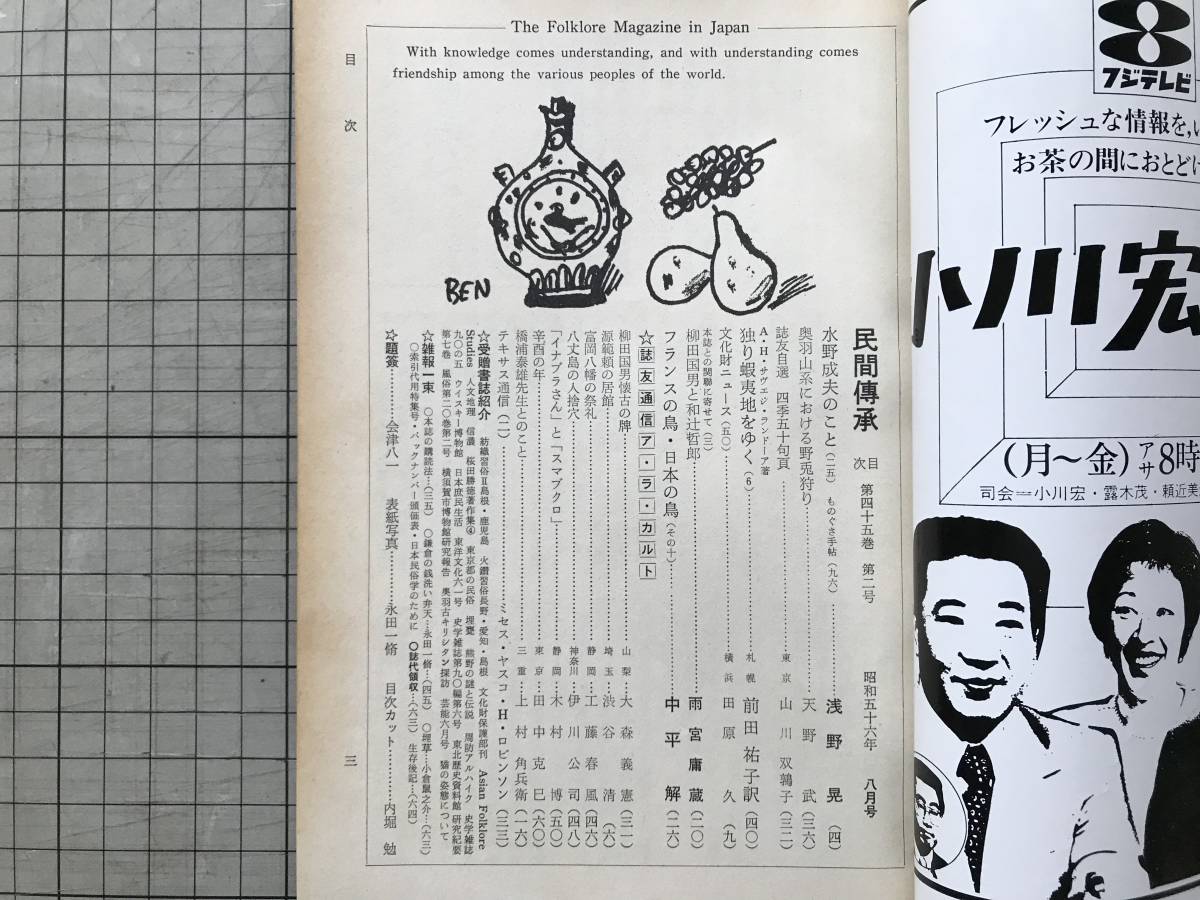 The Folklore Magazine in Japan
With knowledge comes understanding, and with understanding comes
friendship among the various peoples of the world.
目次
BEN
民間傳承 目次 第四十五巻 第二号 昭和五十六年 八月号
水野成夫のこと(二五) ものぐさ手帖(九六)…………浅野晃(四)
奥羽山系における野兎狩り…………天野武(三六)
誌友自選 四季五十句頁…………東京 山川双鶉子(三二)
A・H・サヴエジ・ランドーア著
独り蝦夷地をゆく(6)…………札幌 前田祐子訳(四〇)
文化財ニュース(五〇)…………横浜 田原久(九)
本誌との関聯に寄せて(三)
柳田国男と和辻哲郎…………雨宮庸蔵(二〇)
フランスの鳥・日本の鳥(その十)…………中平解(二六)
☆誌友通信ア・ラ・カルト
柳田国男懐古の牌…………山梨 大森義憲(三一)
源範頼の居館…………埼玉 渋谷清(六)
富岡八幡の祭礼…………静岡 工藤春風(四六)
八丈島の人捨穴…………神奈川 伊川公司(四八)
「イナブラさん」と「スマブクロ」…………静岡 木村博(五〇)
辛酉の年…………東京 田中克巳(六〇)
橋浦泰雄先生とのこと…………三重 上村角兵衛(一六)
テキサス通信(二)…………ミセス・ヤスコ・H・ロビンソン(三三)
☆受贈書誌紹介 紡織習俗Ⅱ島根・鹿児島 火鑽習俗長野・愛知・島根 文化財保護部刊 Asian Folklore
Studies 人文地理 信濃 桜田勝徳著作集④ 東京都の民俗 埋甕 熊野の謎と伝説 周防アルハイク 史学雑誌
九〇の五 ウイスキー博物館 日本庶民生活 東洋文化六一号 史学雑誌第九〇編第六号 東北歴史資料館 研究紀要
第七巻 風俗第二〇巻第二号 横須賀市博物館研究報告 奥羽古キリシタン探訪 芸能六月号 猫の姿態について
☆雑報一束 〇本誌の購読法…(三五) 〇鎌倉の銭洗い弁天…永田一脩…(四五) 〇埋草…小倉鼠之介…(六三)
〇索引代用特集号・バックナンバー頒価表・日本民俗学のために 〇誌代領収…(六三) 生存後記…(六四)
☆題簽…………会津八一 表紙写真…………永田一脩 目次カット…………内堀勉
三
8
フジテレビ
フレッシュな情報を,い
お茶の間におとどけ
小川宏
(月〜金)アサ8時
司会=小川宏・露木茂・頼近美